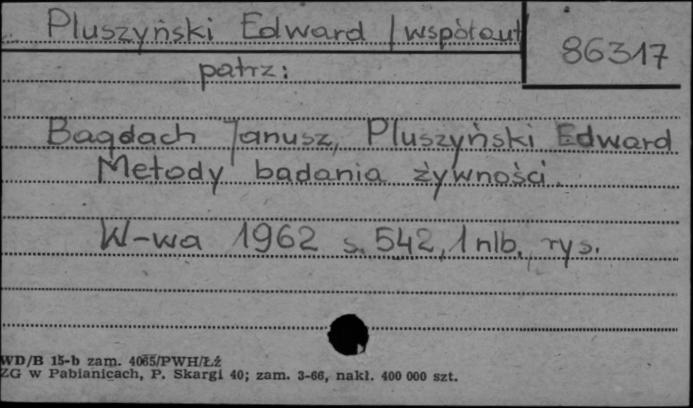 Pluszyński Edward /współaut
86317
patrz:
Bagdach Janusz, Pluszyński Edward
Metody badania żywności.
W-wa 1962 s. 542, 1 nlb., rys.
WD/B 15-b zam. 4065/PWH/Łź
ZG w Pabianicach, P. Skargi 40; zam. 3-66, nakł. 400 000 szt.